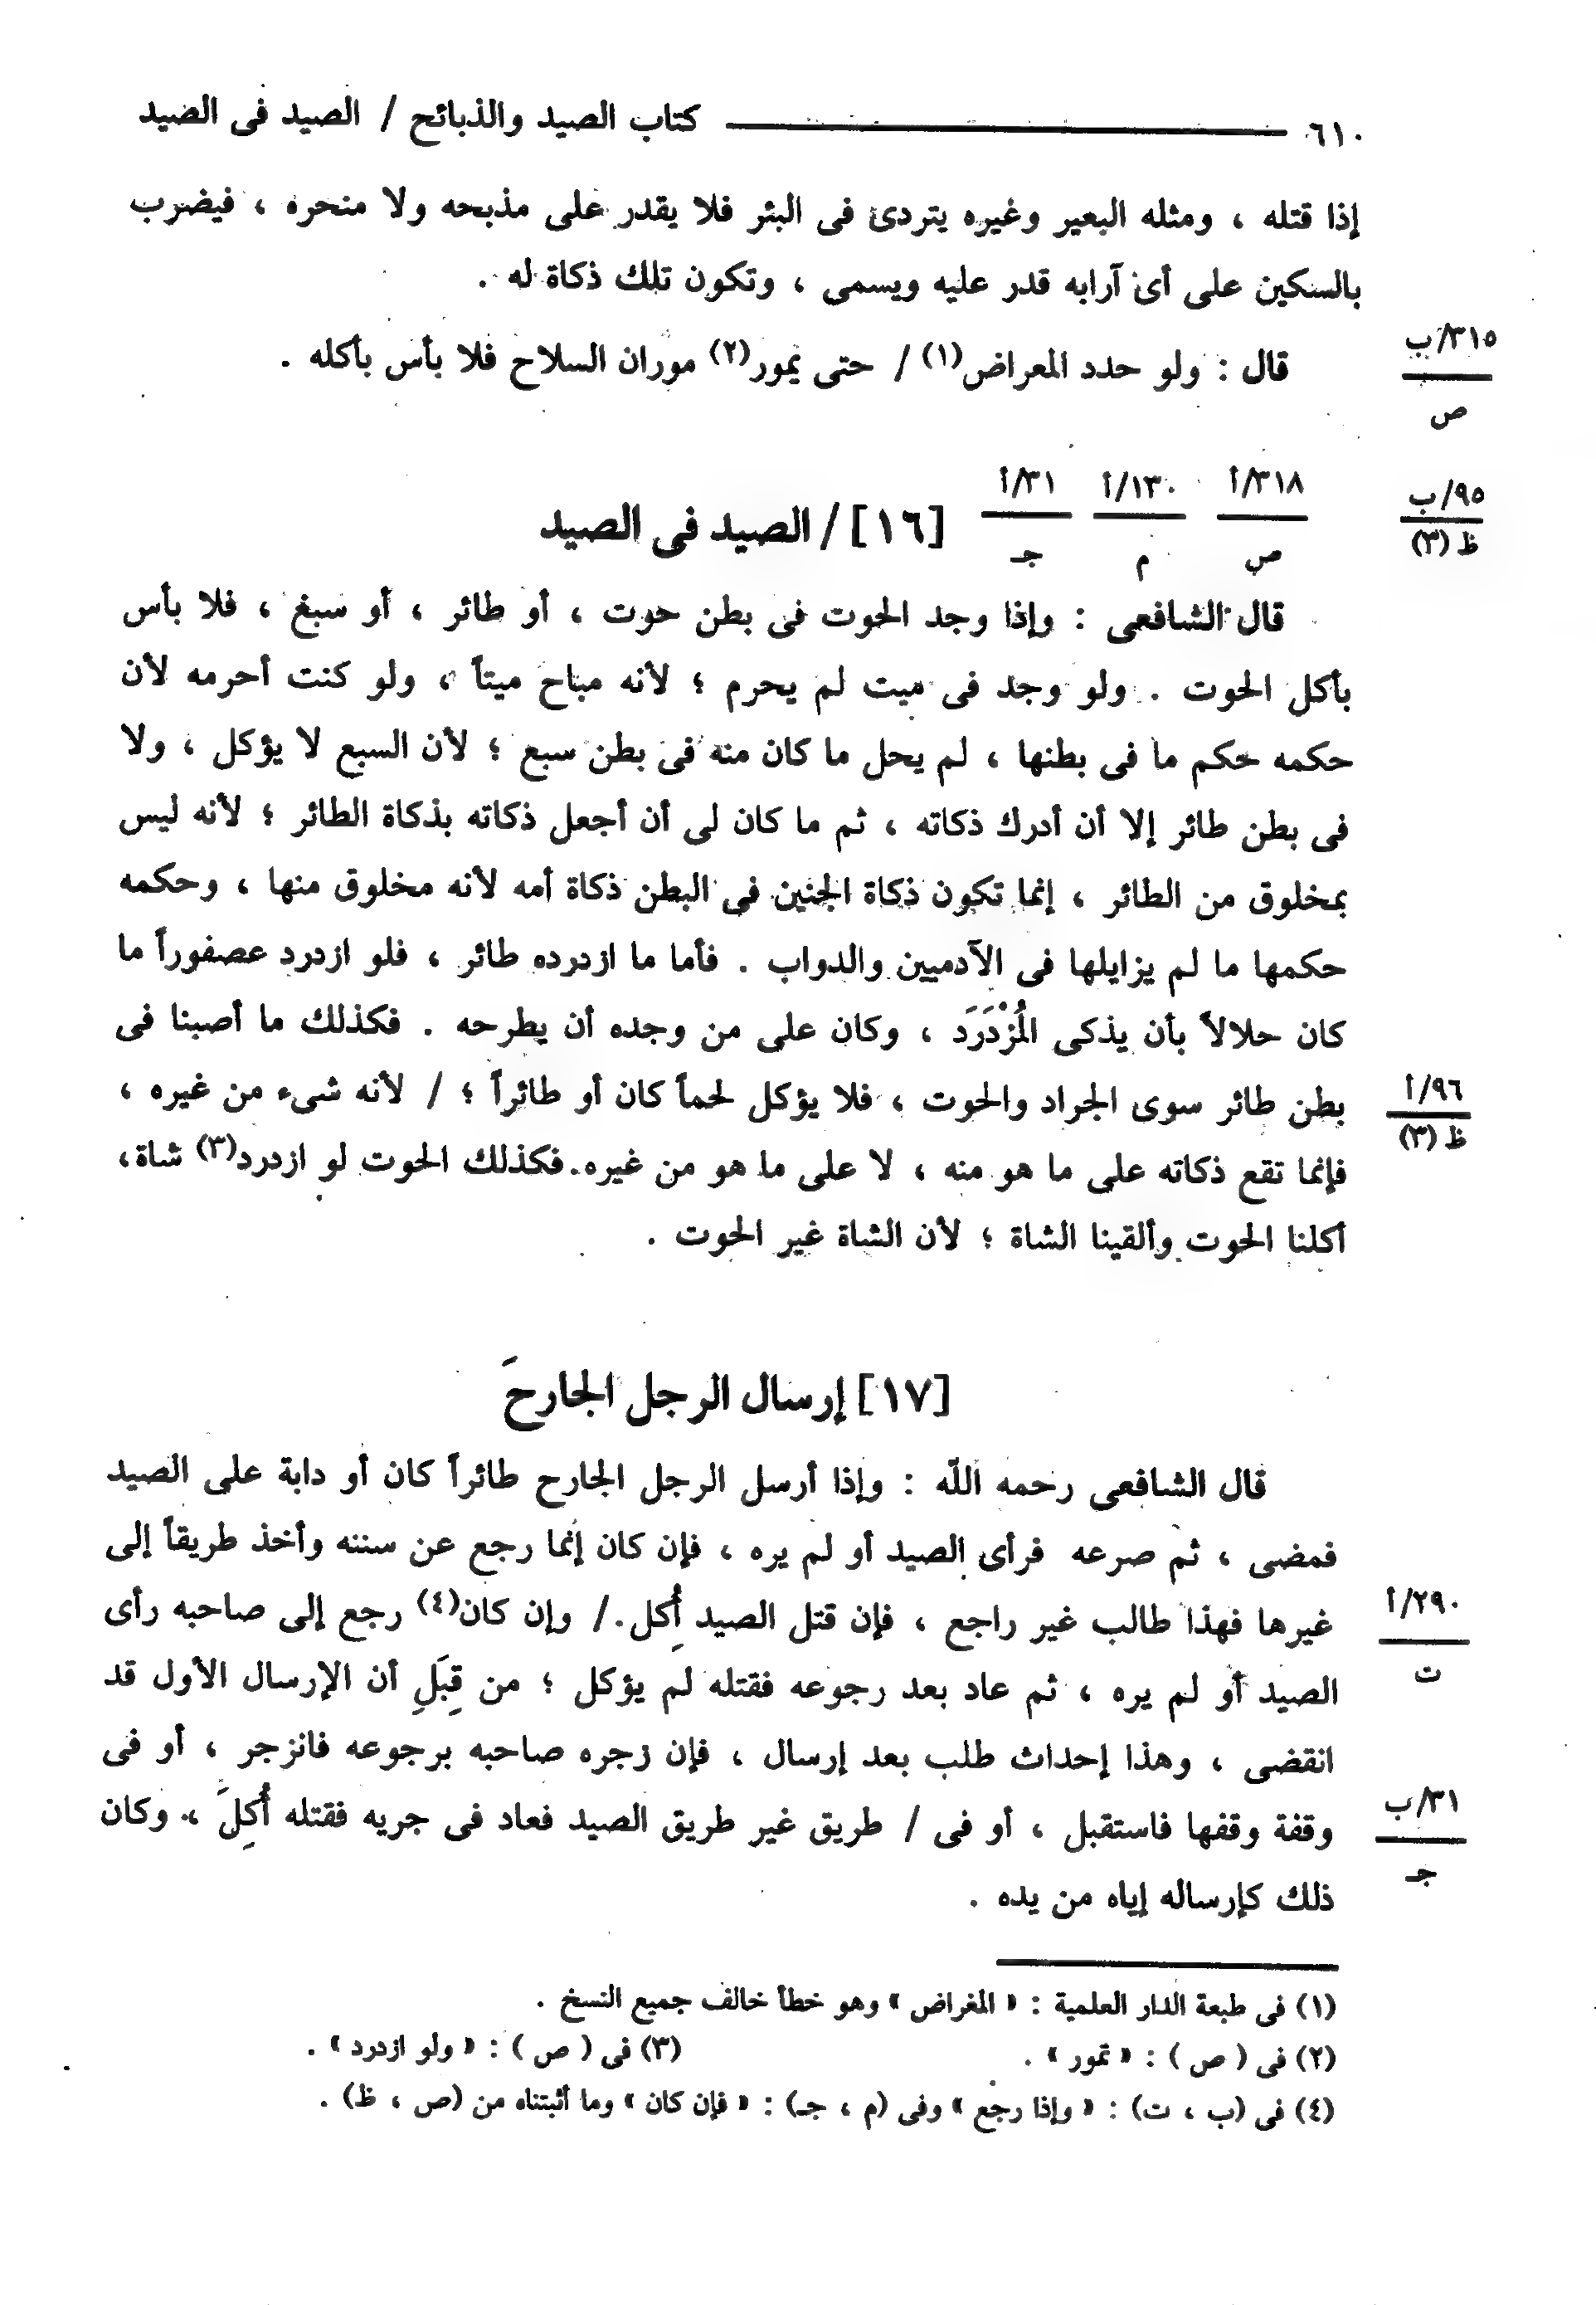 ٦١٠ كتاب الصيد والذبائح / الصيد فى الصيد
إذا قتله ، ومثله البعير وغيره يتردئ فى البئر فلا يقدر على مذبحه ولا منحره ، فيضرب
بالسكين على أى آرابه قدر عليه ويسمى ، وتكون تلك ذكاة له .
٣١٥/ب
ص
قال : ولو حدد المعراض(١) / حتى يمور(٢) موران السلاح فلا بأس بأكله .
٩٥/ب
ظ (٣)
٣١٨/أ
ص
١٣٠/أ
م
٣١/أ
جـ
[١٦] / الصيد فى الصيد
قال الشافعى : وإذا وجد الحوت فى بطن حوت ، أو طائر ، أو سبغ ، فلا بأس
بأكل الحوت . ولو وجد فى ميت لم يحرم ؛ لأنه مباح ميتاً ، ولو كنت أحرمه لأن
حكمه حكم ما فى بطنها ، لم يحل ما كان منه فى بطن سبع ؛ لأن السبع لا يؤكل ، ولا
فى بطن طائر إلا أن أدرك ذكاته ، ثم ما كان لى أن أجعل ذكاته بذكاة الطائر ؛ لأنه ليس
بمخلوق من الطائر ، إنما تكون ذكاة الجنين فى البطن ذكاة أمه لأنه مخلوق منها ، وحكمه
حكمها ما لم يزايلها فى الآدميين والدواب . فأما ما ازدرده طائر ، فلو ازدرد عصفوراً ما
كان حلالاً بأن يذكى المُزْدَرَد ، وكان على من وجده أن يطرحه . فكذلك ما أصبنا فى
بطن طائر سوى الجراد والحوت ، فلا يؤكل لحماً كان أو طائراً ؛ / لأنه شىء من غيره ،
٩٦/أ
ظ (٣)
فإنما تقع ذكاته على ما هو منه ، لا على ما هو من غيره. فكذلك الحوت لو ازدرد(٣) شاة،
أكلنا الحوت وألقينا الشاة ؛ لأن الشاة غير الحوت .
[١٧] إرسال الرجل الجارحَ
قال الشافعى رحمه اللّه : وإذا أرسل الرجل الجارح طائراً كان أو دابة على الصيد
فمضى ، ثم صرعه فرأى الصيد أو لم يره ، فإن كان إنما رجع عن سننه وأخذ طريقاً إلى
غيرها فهذا طالب غير راجع ، فإن قتل الصيد أُكِل . / وإن كان(٤) رجع إلى صاحبه رأى
٢٩٠/أ
ت
الصيد أو لم يره ، ثم عاد بعد رجوعه فقتله لم يؤكل ؛ من قِبَلِ أن الإرسال الأول قد
انقضى ، وهذا إحداث طلب بعد إرسال ، فإن زجره صاحبه برجوعه فانزجر ، أو فى
وقفة وقفها فاستقبل ، أو فى / طريق غير طريق الصيد فعاد فى جريه فقتله أُكِلَ ، وكان
٣١/ب
جـ
ذلك كإرساله إياه من يده .
(١) فى طبعة الدار العلمية : « المغراض » وهو خطأ خالف جميع النسخ .
(٢) فى ( ص ) : « تمور » . (٣) فى ( ص ) : « ولو ازدرد » .
(٤) فى (ب ، ت) : « وإذا رجع » وفى (م ، جـ) : « فإن كان » وما أثبتناه من (ص ، ظ) .